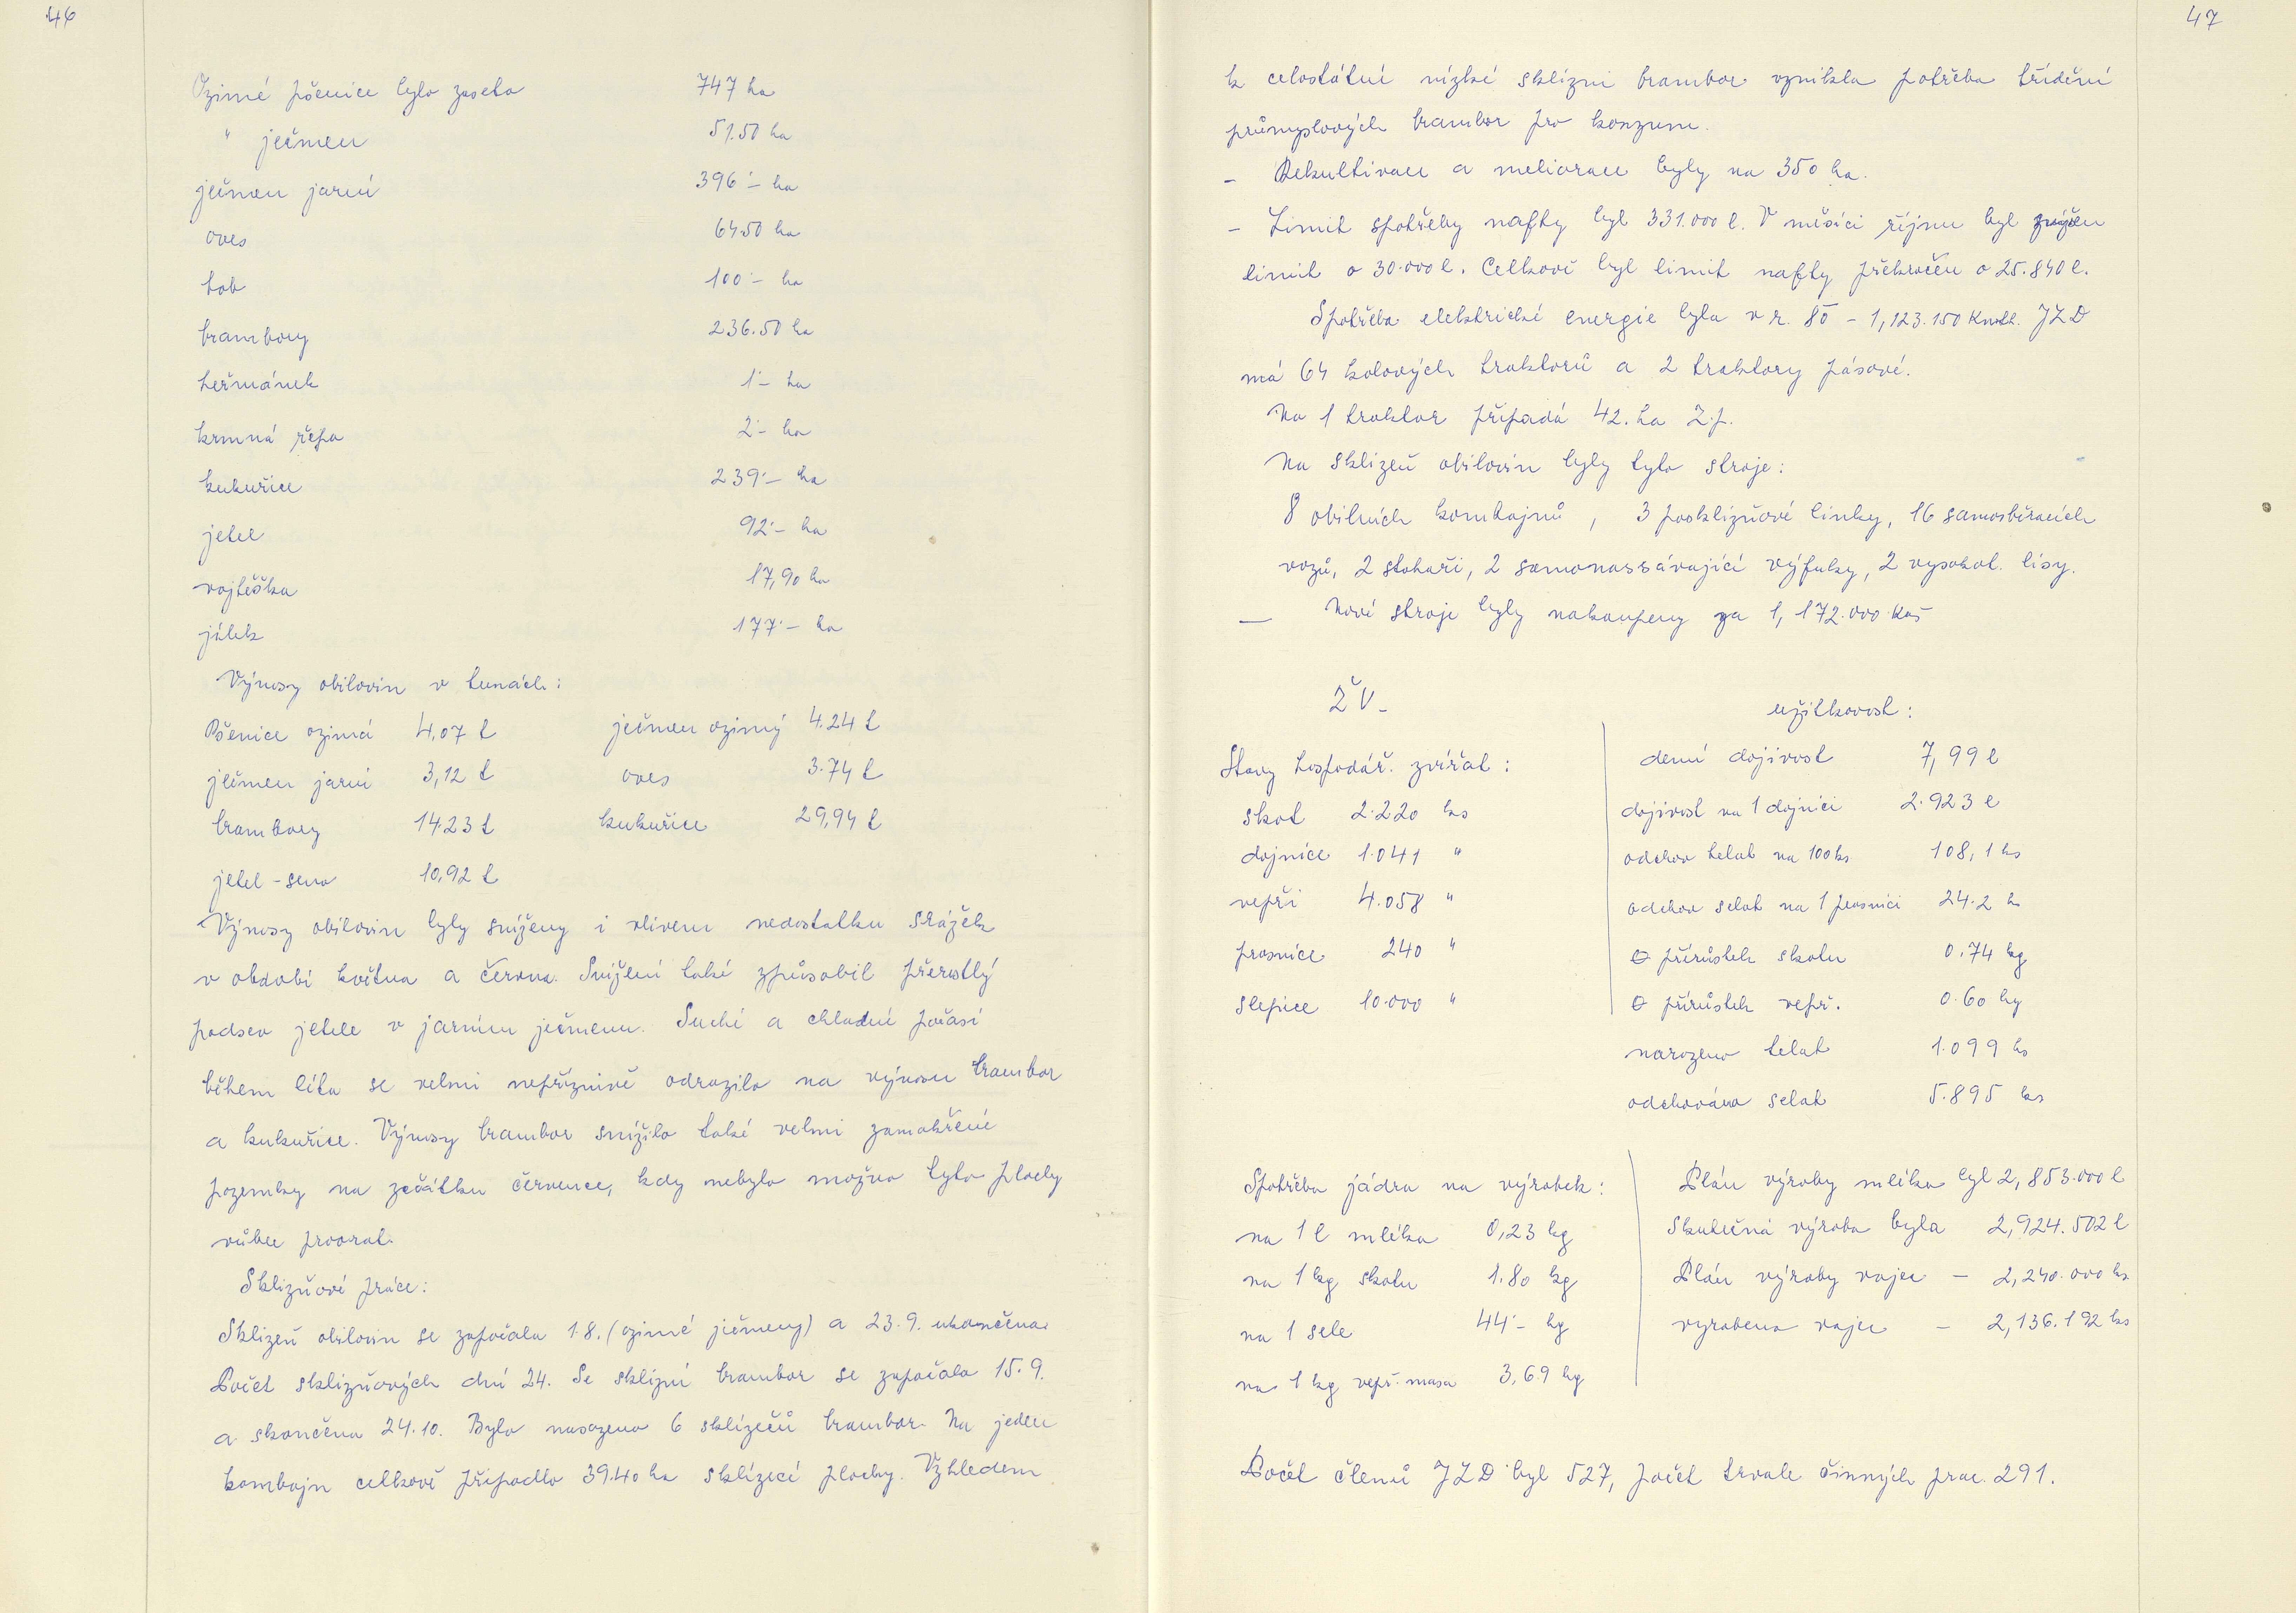 46
Ozimé pšenice bylo zaseto 747 ha
" ječmen 51.50 ha
ječmen jarní 396'- ha
oves 64.50 ha
bob 100'- ha
brambory 236.50 ha
heřmánek 1'- ha
krmná řepa 2'- ha
kukuřice 239'- ha
jetel 92'- ha
vojtěška 17,90 ha
jílek 177'- ha
Výnosy obilovin v tunách:
Pšenice ozimá 4,07 t ječmen ozimý 4.24 t
ječmen jarní 3,12 t oves 3.74 t
brambory 14.23 t kukuřice 29,94 t
jetel - seno 10,92 t
Výnosy obilovin byly sníženy i vlivem nedostatku srážek
v období května a června. Snížení také způsobil přerostlý
podsev jetele v jarním ječmenu. Suché a chladné počasí
během léta se velmi nepříznivě odrazilo na výnosu brambor
a kukuřice. Výnosy brambor snížilo také velmi zamokřené
pozemky na začátku července, kdy nebylo možno tyto plochy
vůbec proorat.
Sklizňové práce:
Sklizeň obilovin se započala 1.8. (ozimé ječmeny) a 23.9. ukončena.
Počet sklizňových dní 24. Se sklizní brambor se započalo 15.9.
a skončeno 24.10. Bylo nasazeno 6 sklízečů brambor. Na jeden
kombajn celkově připadlo 39.40 ha sklízecí plochy. Vzhledem
47
k celostátní nízké sklizni brambor vznikla potřeba třídění
průmyslových brambor pro konzum.
- Rekultivace a meliorace byly na 350 ha.
- Limit spotřeby nafty byl 331.000 l. V měsíci říjnu byl zvýšen
limit o 30.000 l. Celkově byl limit nafty překročen o 25.840 l.
Spotřeba elektrické energie byla v r. 80 - 1,123.150 Kwh. JZD
má 64 kolových traktorů a 2 traktory pásové.
Na 1 traktor připadá 42. ha z.p.
Na sklizeň obilovin byly tyto stroje:
8 obilních kombajnů, 3 posklizňové linky, 16 samosběracích
vozů, 2 stohaři, 2 samonassávající výfuky, 2 vysokot. lisy.
- Nové stroje byly nakoupeny za 1,172.000 Kčs
ŽV-
Stavy hospodář. zvířat:
skot 2.220 ks
dojnice 1.041 "
vepři 4.058 "
prasnice 240 "
slepice 10.000 "
užitkovost:
denní dojivost 7,99 l
dojivost na 1 dojnici 2.923 l
odchov telat na 100 ks 108,1 ks
odchov selat na 1 prasnici 24.2 ks
⌀ přírůstek skotu 0.74 kg
⌀ přírůstek vepř. 0.60 kg
narozeno telat 1.099 ks
odchováno selat 5.895 ks
Spotřeba jádra na výrobek:
na 1 l mléka 0,23 kg
na 1 kg skotu 1.80 kg
na 1 sele 44'- kg
na 1 kg vepř. masa 3,69 kg
Plán výroby mléka byl 2,853.000 l
Skutečná výroba byla 2,924.502 l
Plán výroby vajec - 2,240.000 ks
vyrobeno vajec - 2,136.192 ks
Počet členů JZD byl 527, počet trvale činných prac. 291.